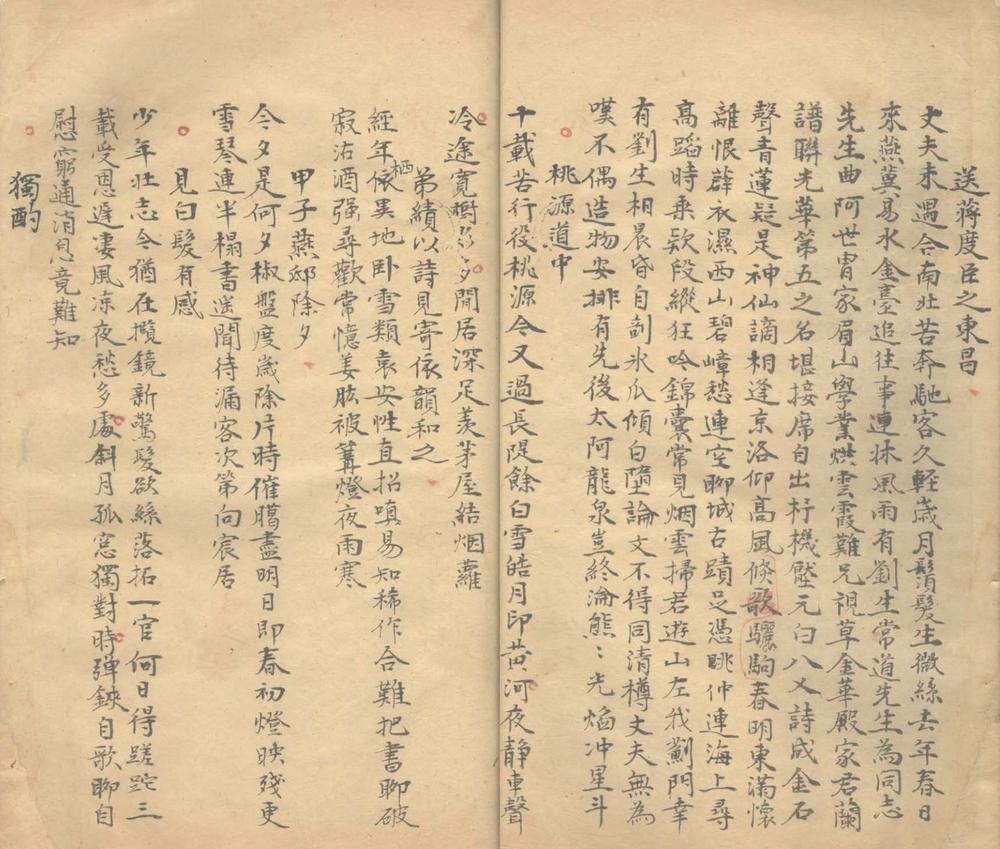 送蔣度臣之東昌
丈夫未遇合南北苦奔馳客久輕歲月鬚髮生微絲去年春日
來燕冀易水金臺追往事連牀風雨有劉生常道先生為同志
先生曲阿世胄家眉山學業烘雲霞難兄視草金華殿家君蘭
譜聯光華第五之名堪接席白出杼機壓元白八乂詩成金石
聲青蓮疑是神仙謫相逢京洛仰高風倏歌驪駒春明東滿懷
離恨辟衣濕西山碧嶂愁連空聊城古蹟足憑眺仲連海上尋
高蹈時乘欵段縱狂吟錦囊常見烟雲掃君遊山左我薊門幸
有劉生相晨昏自剖氷瓜傾白墮論文不得同清樽丈夫無為
嘆不偶造物安排有先後太阿龍泉豈終淪熊〻光焰冲星斗
桃源道中
千載苦行役桃源今又過長隄餘白雪皓月印黃河夜靜車聲
冷途寬樹影多閒居深足羨茅屋結烟蘿
弟績以詩見寄依韻和之
經年依異地卧雪類袁安性直招嗔易知稀作合難把書聊破
栖
寂沽酒强尋歡常憶姜肱被篝燈夜雨寒
甲子燕邸除夕
今夕是何夕椒盤度歲除片時催臈盡明日即春初燈映殘更
雪琴連半榻書遙聞待漏客次第向宸居
見白髮有感
少年壯志今猶在攬鏡新驚髮欲絲落拓一官何日得蹉跎三
載受恩遲凄風凉夜愁多處斜月孤窓獨對時彈鋏自歌聊自
慰窮通消息竟難知
獨酌